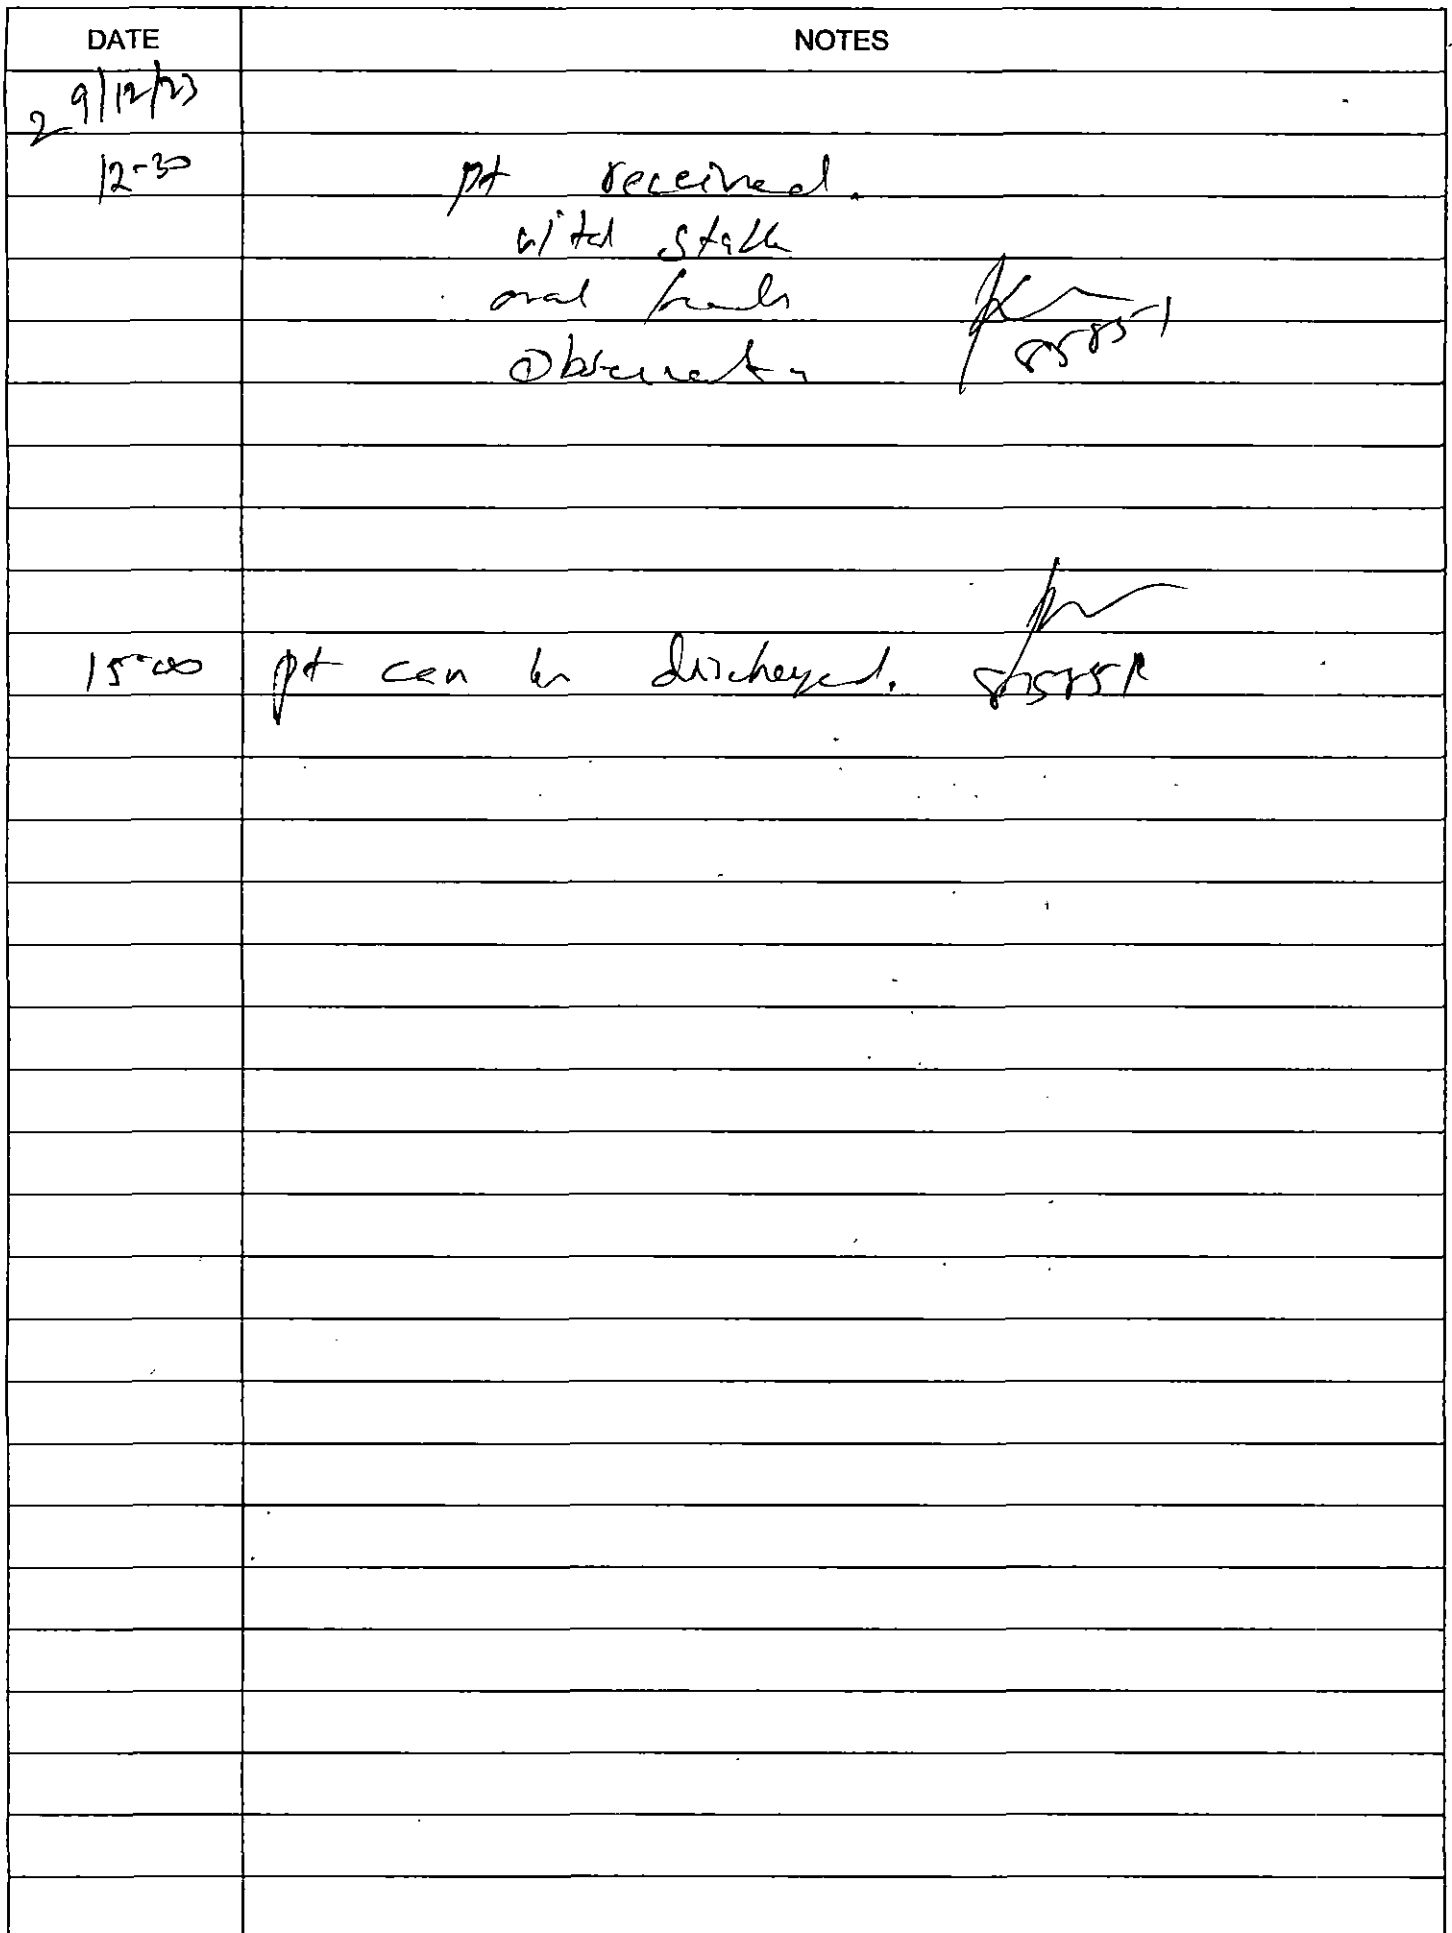 DATE NOTES
29/12/23
12-30 pt received.
vital stable
oral
Observation
85851
15-00 pt can be discharged. 85851